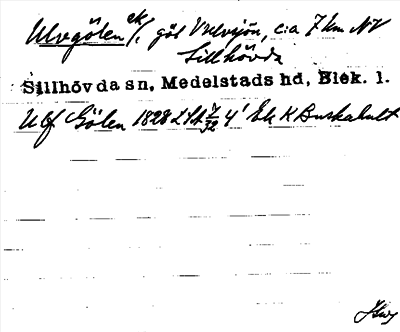 Ulvgölen ek/ göl V Ulvsjön, c:a 7 km NV
Sillhövda
Sillhövda sn, Medelstads hd, Blek. l.
Ulf Gölen 1828 LSA 4' Ek K Buskahult